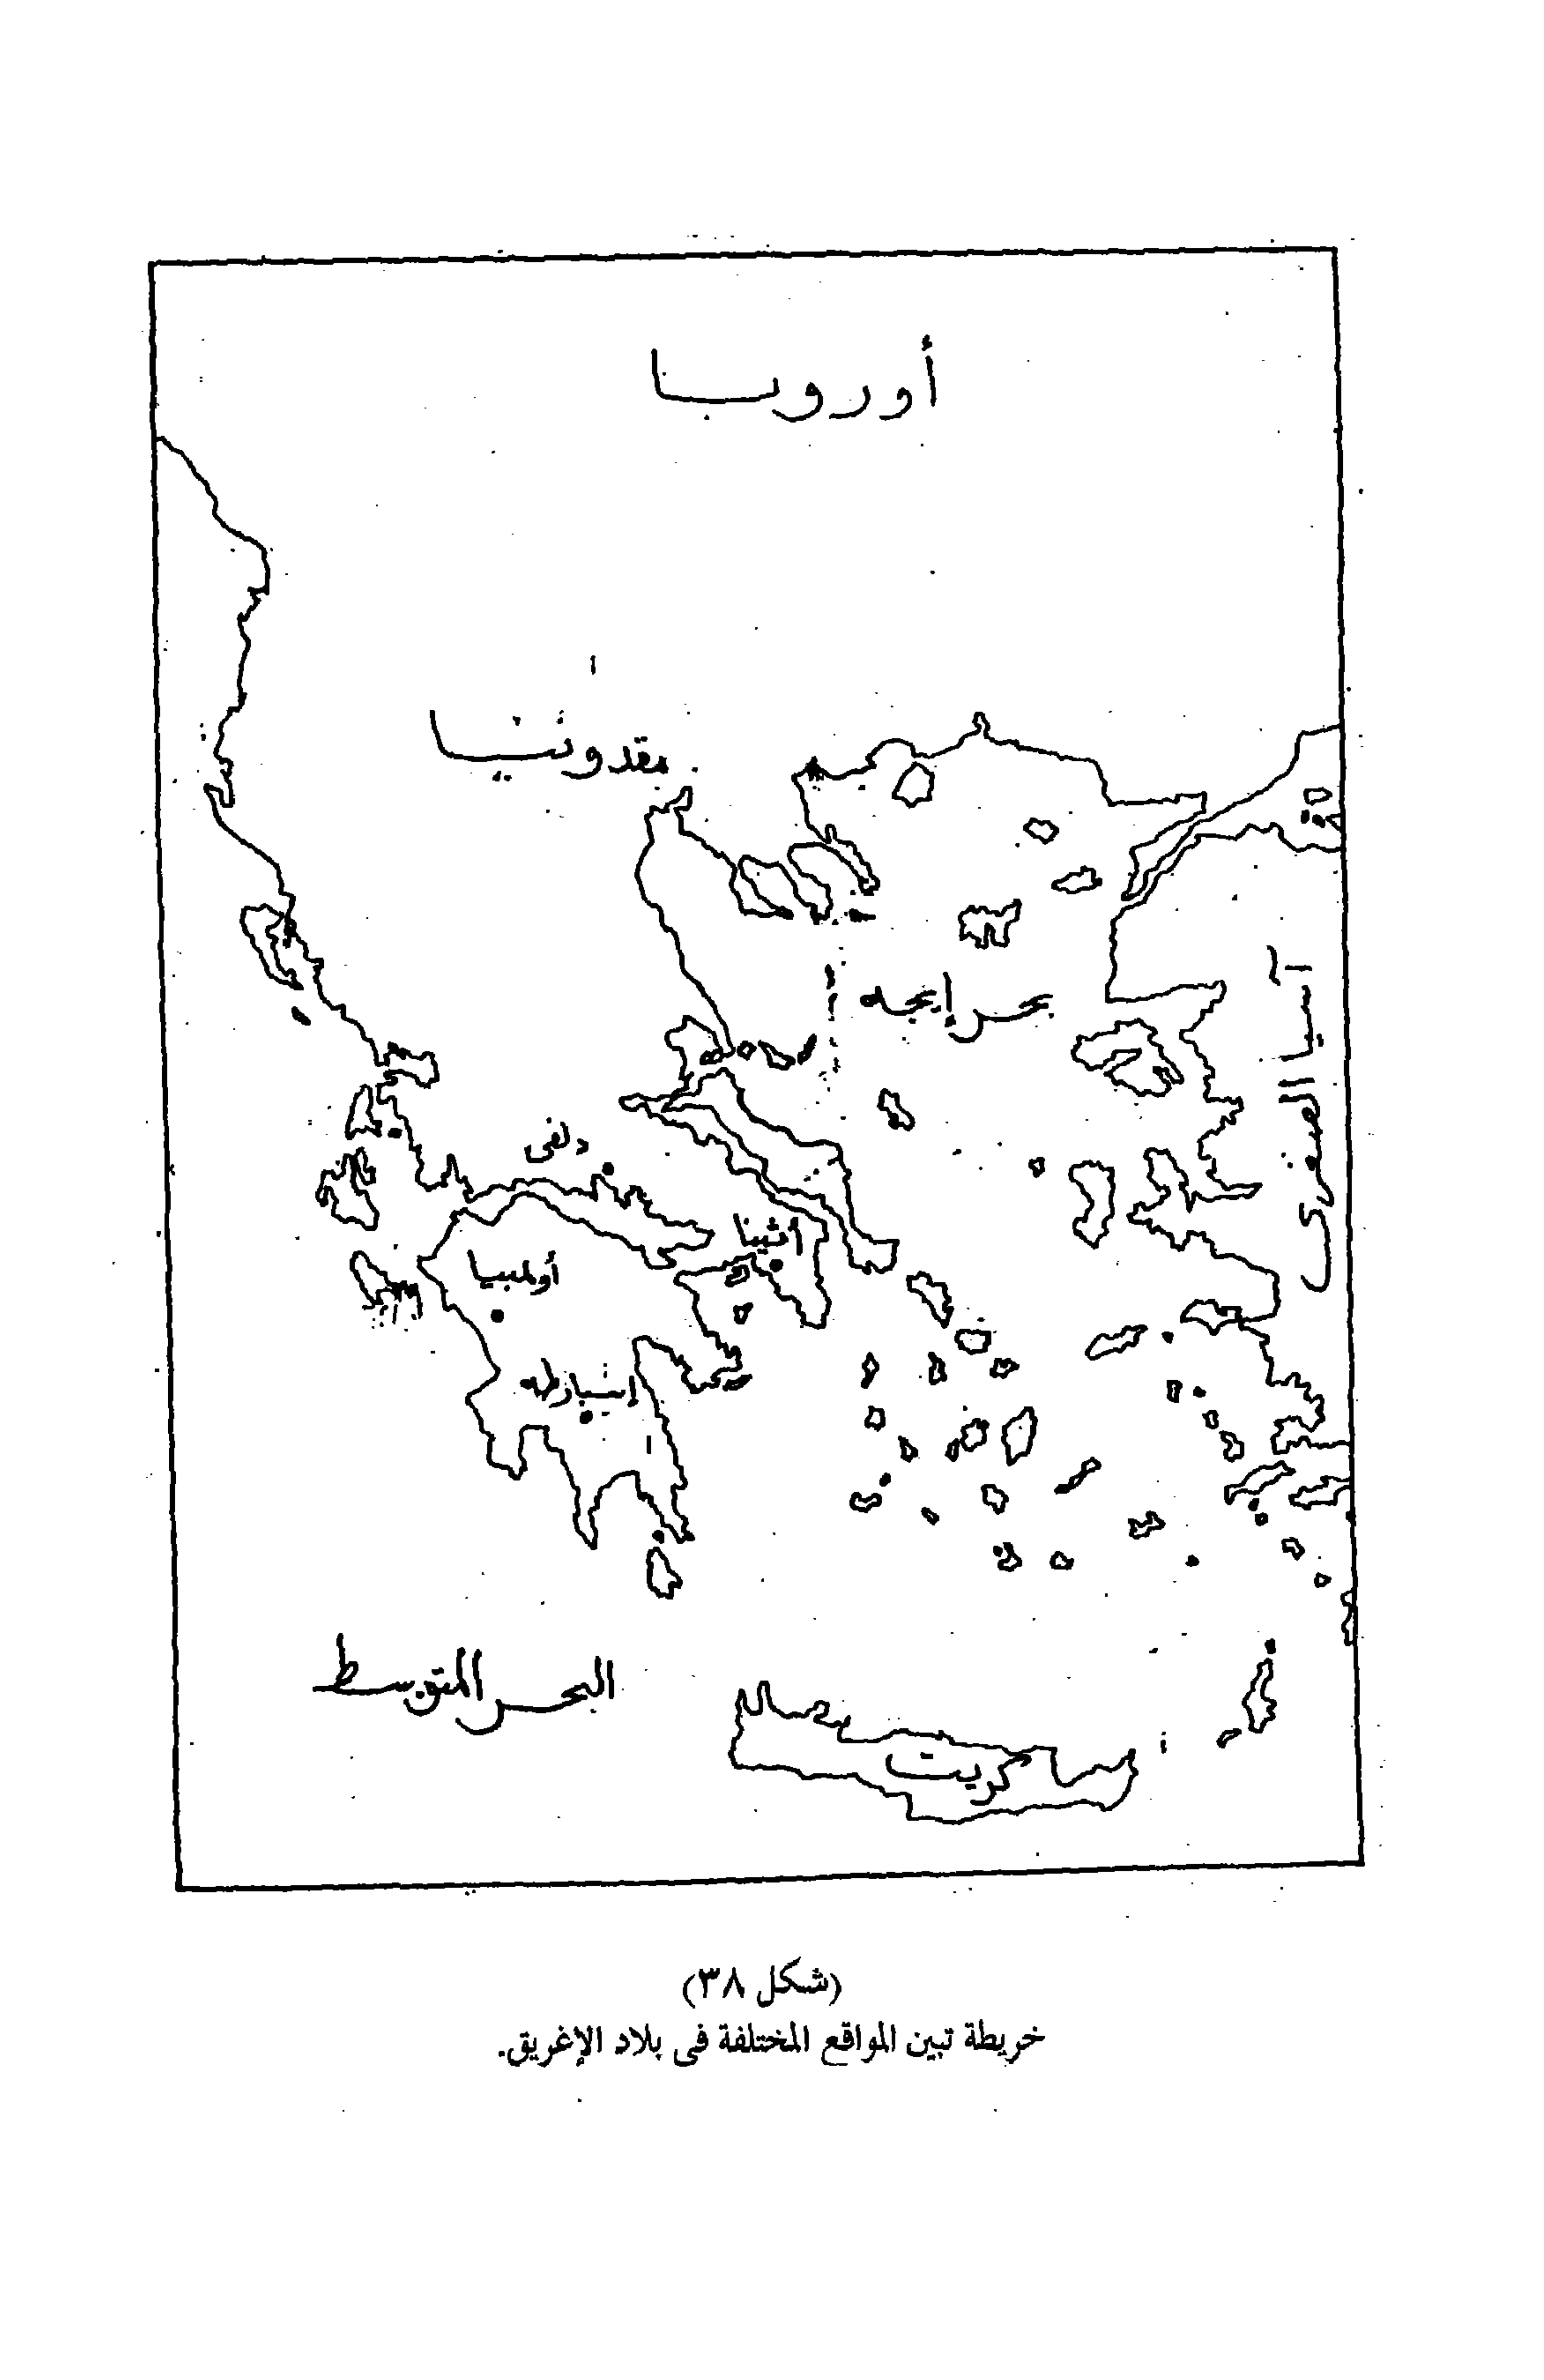 أوروبا
مقدونيا
بحر إيجه
آسيا الصغرى
دلفى
أثينا
أولمبيا
إسبارطه
البحر المتوسط
كريت
(شكل ٣٨)
خريطة تبين المواقع المختلفة فى بلاد الإغريق.